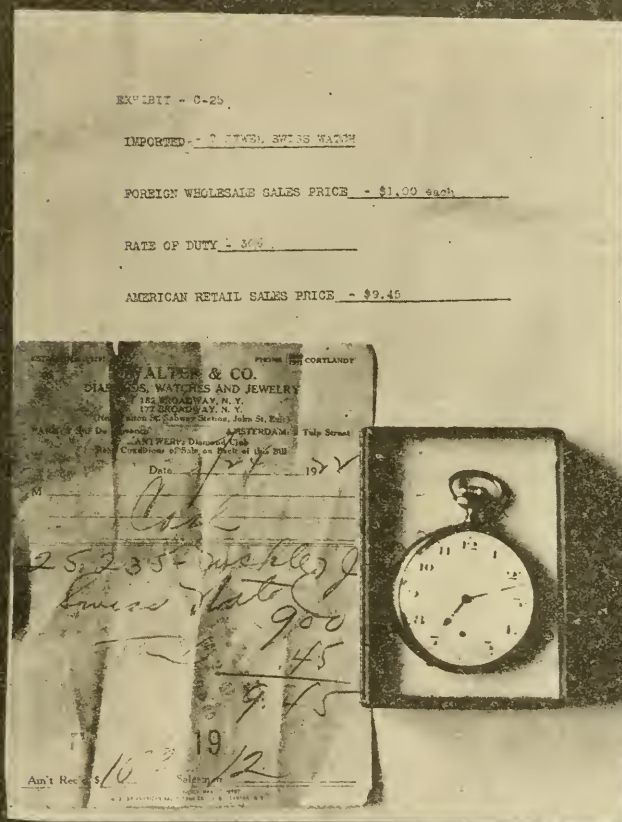 EXHIBIT - C-25
IMPORTED - 7 JEWEL SWISS WATCH
FOREIGN WHOLESALE SALES PRICE - $1.00 each
RATE OF DUTY - 30%
AMERICAN RETAIL SALES PRICE - $9.45
CORTLANDT
WALTER & CO.
DIAMONDS, WATCHES AND JEWELRY
182 BROADWAY, N. Y.
177 BROADWAY, N. Y.
Fulton St. Subway Station, John St. Exit)
AMSTERDAM: Tulp Straat
ANTWERP: Diamond Club
Read Conditions of Sale on Back of this Bill
Date 1/24 1922
M
Cash
25,235 - Nickle 7 J
Swiss
9.00
.45
9.45
19
Am't Rec'd $10 Salesman 12
11 12
10 1
9 2
8 4
7 5